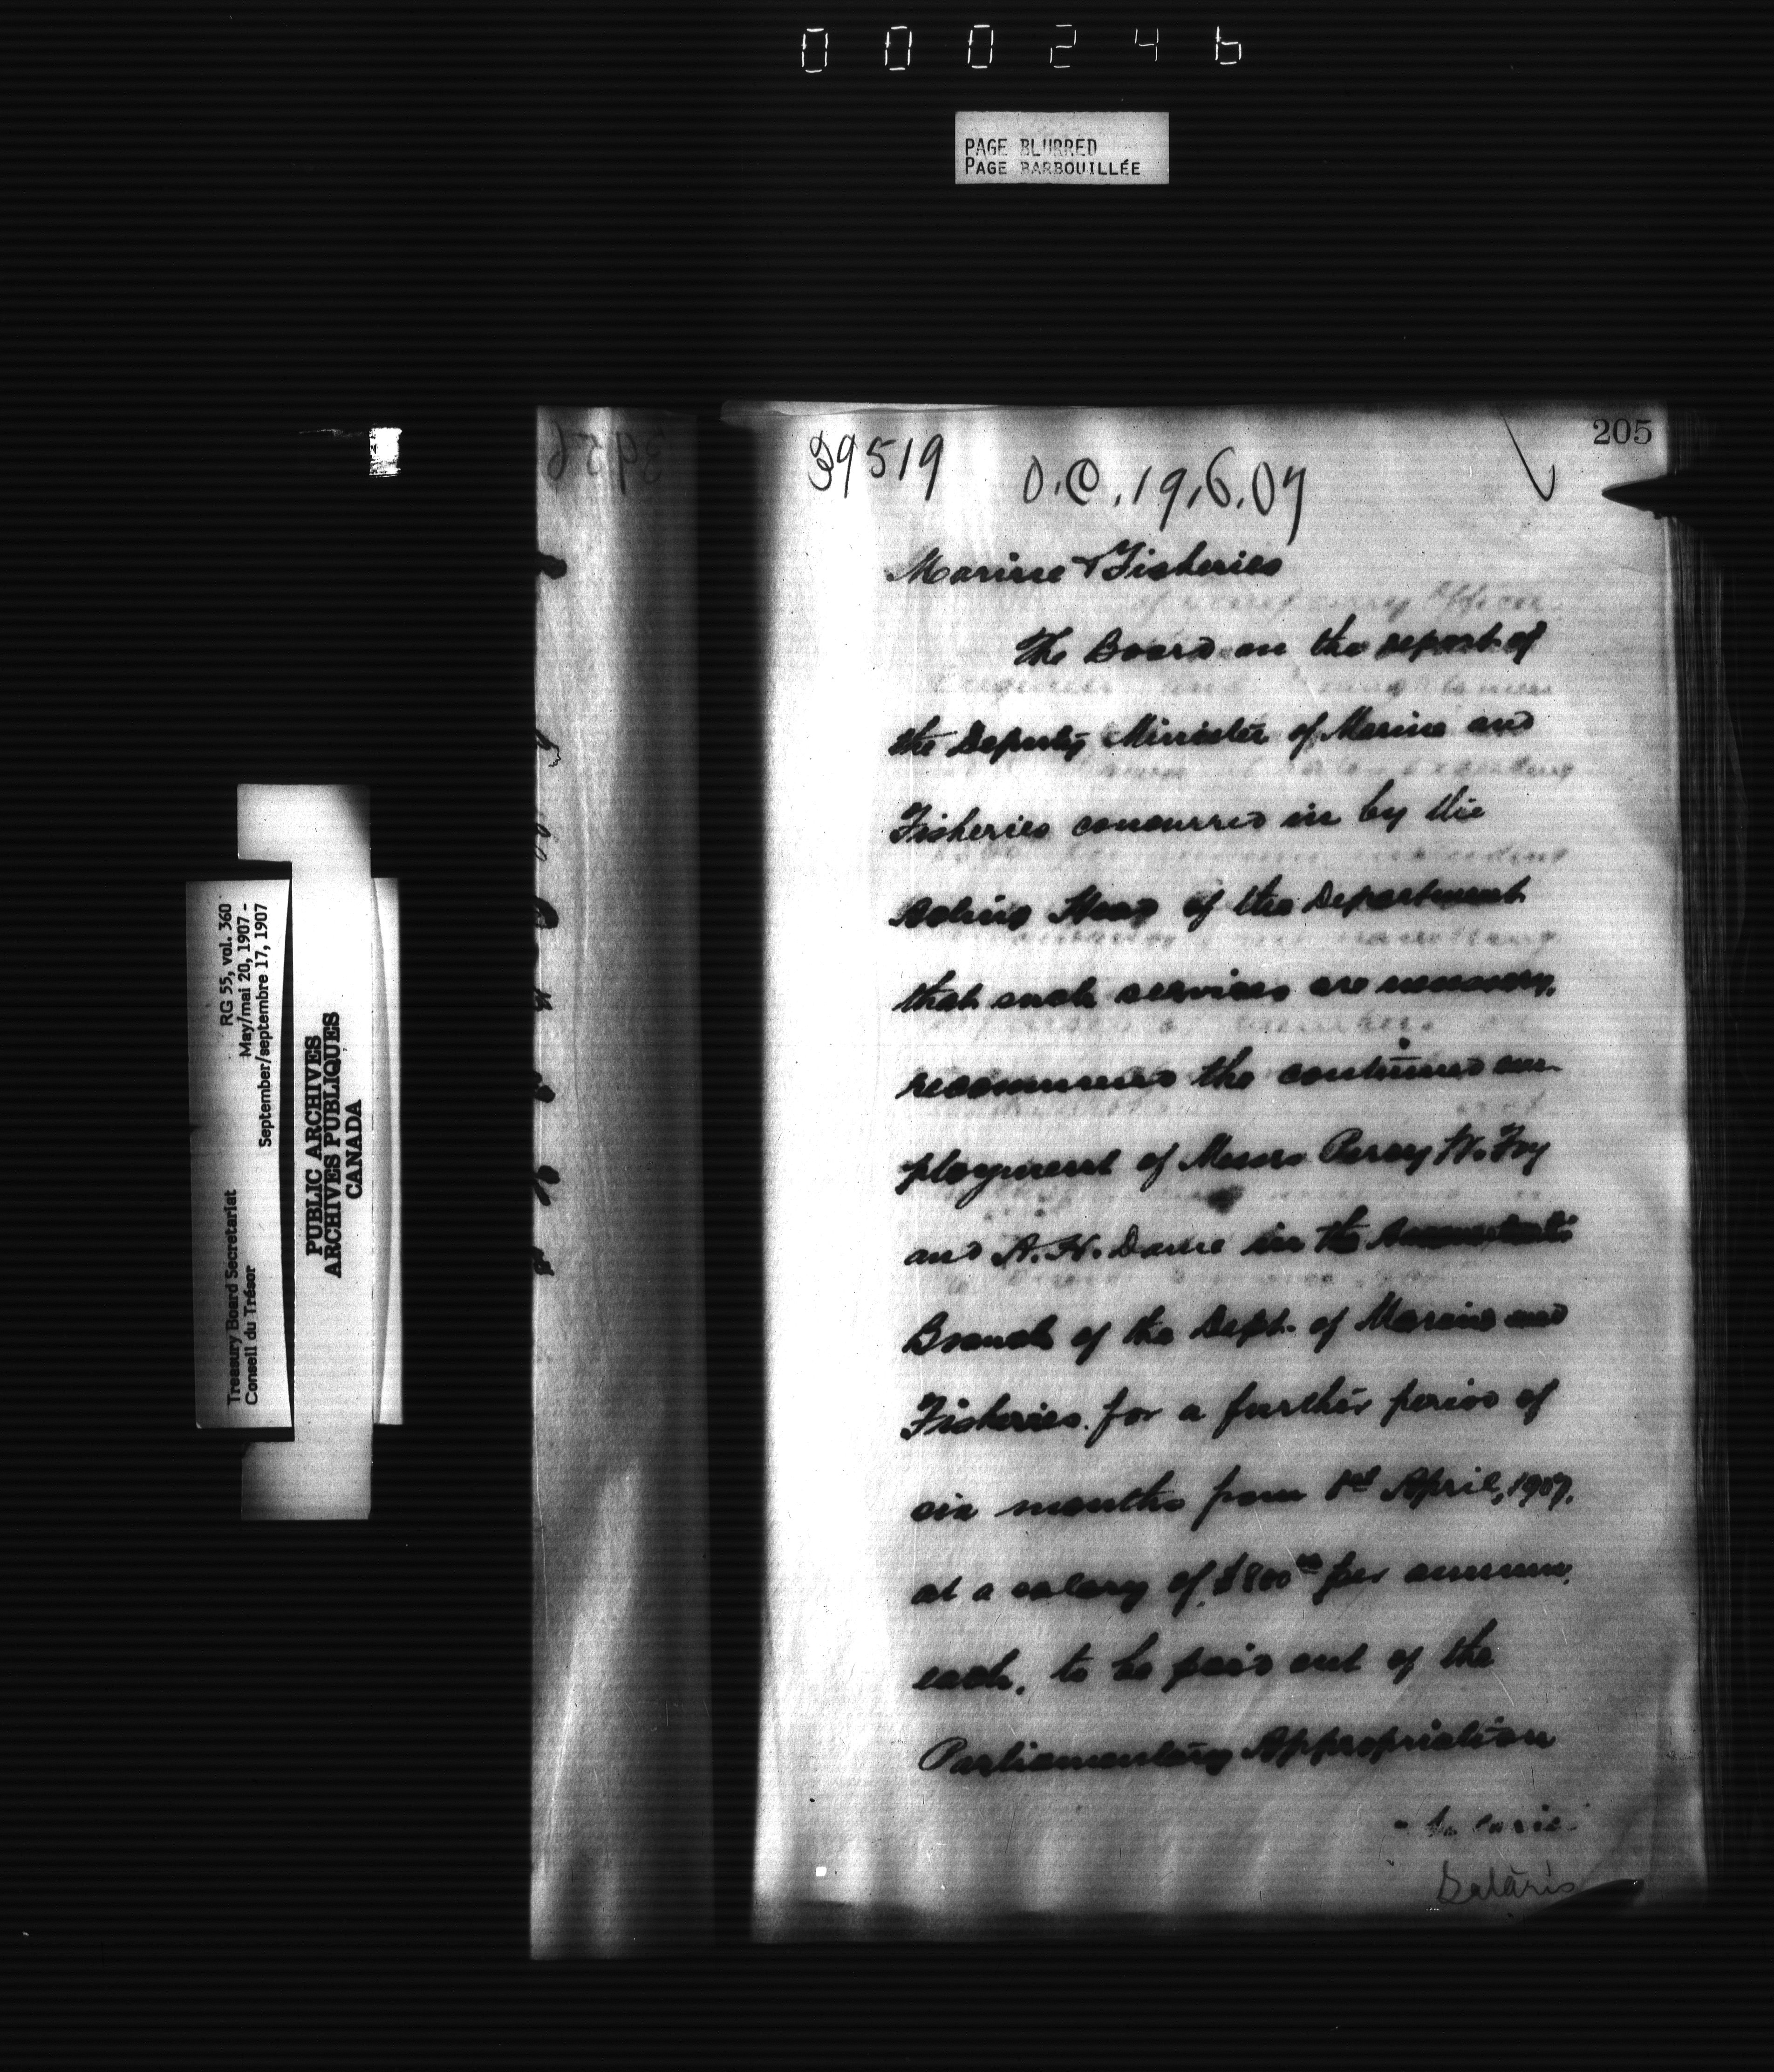 000246
PAGE BLURRED
PAGE BARBOUILLÉE
205
39519 O.C. 19.6.07
Marine & Fisheries
The Board on the report of
the Deputy Minister of Marine and
Fisheries concurred in by the
Acting Head of the Department
that such services are necessary,
recommend the continued em-
ployment of Messrs Percy W. Foy
and A. H. Dame in the Accountant's
Branch of the Dept. of Marine and
Fisheries for a further period of
six months from 1st April, 1907,
at a salary of $800 00 per annum,
each, to be paid out of the
Parliamentary Appropriation
Salaries
Treasury Board Secretariat
Conseil du Trésor
RG 55, vol. 360
May/mai 20, 1907 -
September/septembre 17, 1907
PUBLIC ARCHIVES
ARCHIVES PUBLIQUES
CANADA